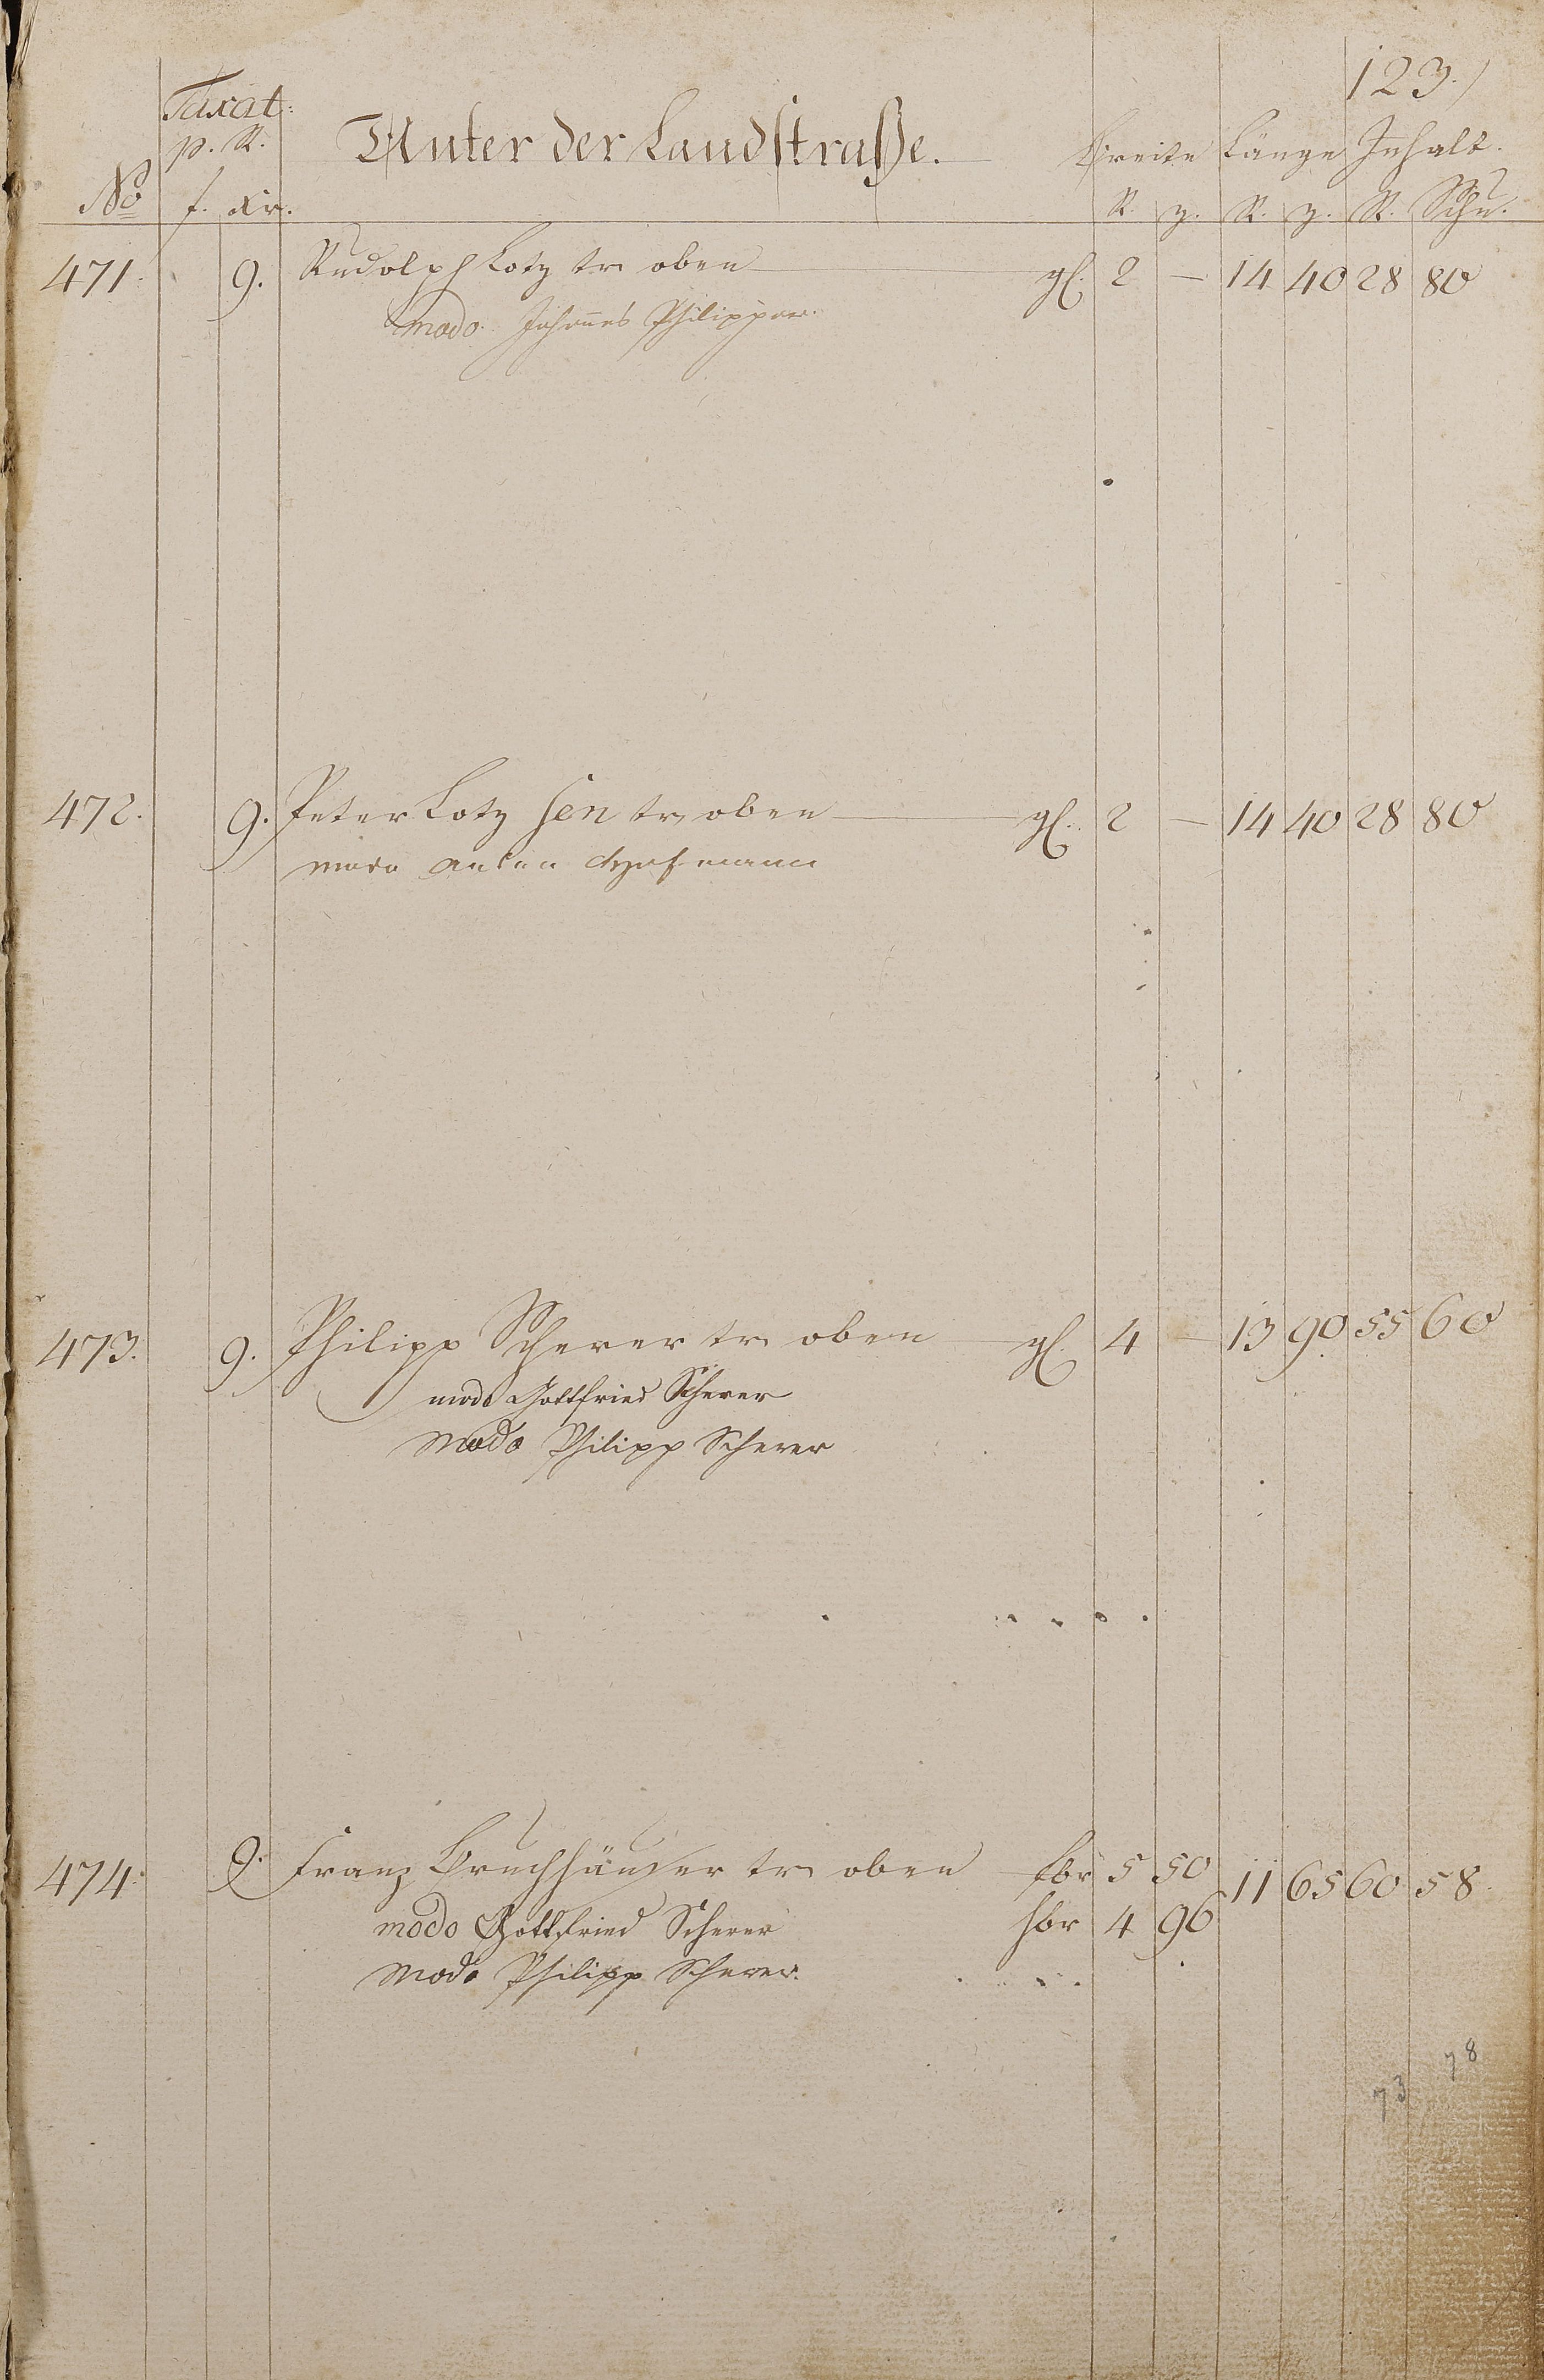 123.)
Taxat: p. R. Unter der Landstraße. Breite Länge Inhalt.
No f. xr. R. z. R. z. R. Schu.
471. 9. Rudolph Lotz tr oben gl. 2 — 14 40 28 80
modo Johannes Philippar.
472. 9. Peter Lotz sen tr oben gl. 2 — 14 40 28 80
modo Anton
473. 9. Philipp Scherer tr oben gl. 4 — 13 90 55 60
modo Gottfried Scherer
Modo Philipp Scherer
474. 9. Franz Bruchhäuser tr oben fbr 5 50 11 65 60 58.
hbr 4 96
modo Gottfried Scherer
Modo Philipp Scherer.
78
73